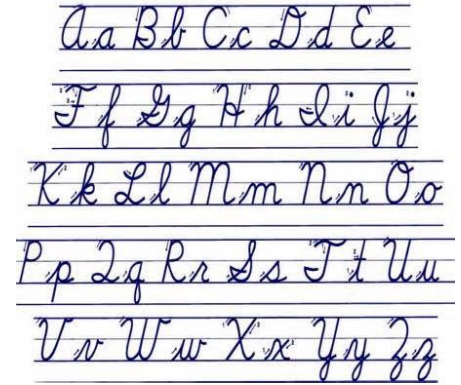 Aa Bb Cc Dd Ee
Ff Gg Hh Ii Jj
Kk Ll Mm Nn Oo
Pp Qq Rr Ss Tt Uu
Vv Ww Xx Yy Zz